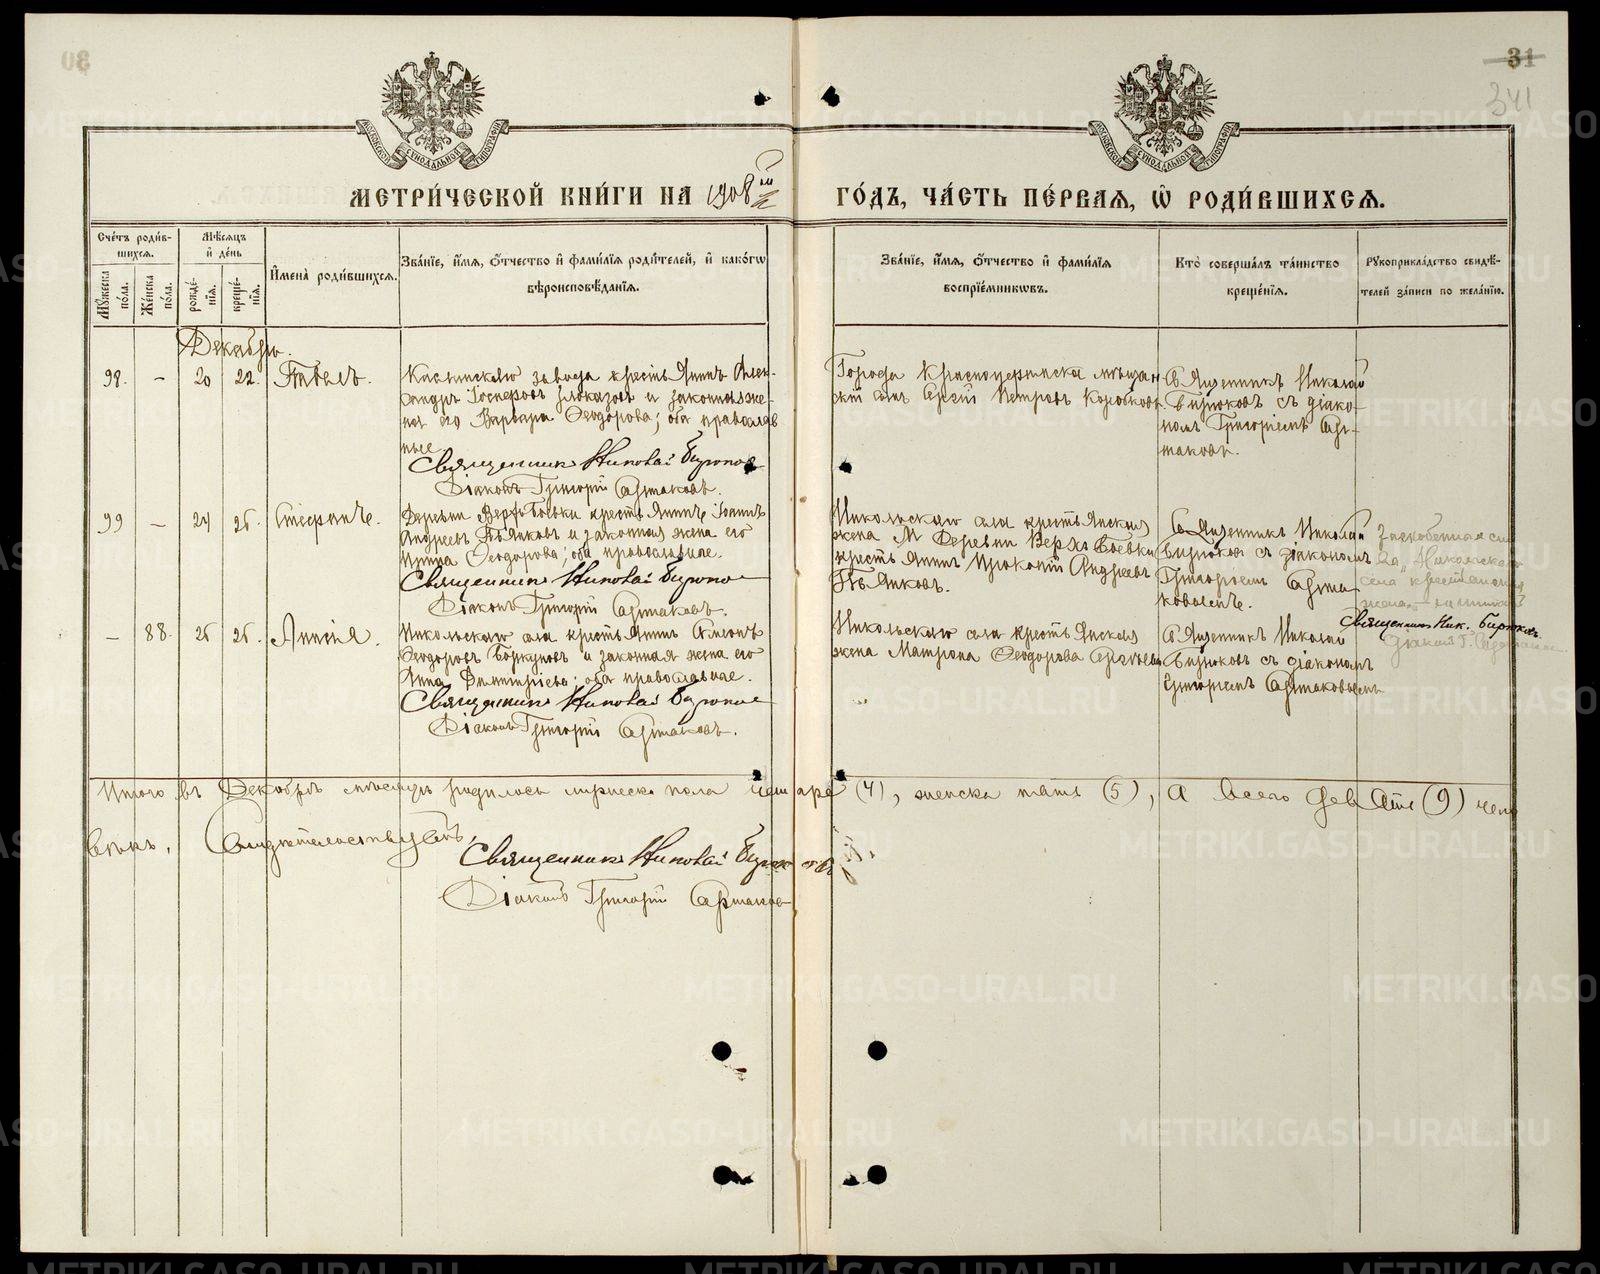 30
31
341
МОСКОВСКОЙ СѴНОДАЛЬНОЙ ТИПОГРАФІИ
МОСКОВСКОЙ СѴНОДАЛЬНОЙ ТИПОГРАФІИ
МЕТРИ́ЧЕСКОЙ КНИ́ГИ НА 1908 й ГО́ДЪ, ЧА́СТЬ ПЕ́РВАѦ, Ѡ РОДИ́ВШИХСѦ.
Сче́тъ роди́в-
шихсѧ.
Мѹ́жеска по́ла.
Же́нска по́ла.
Мѣ́сяцъ
и де́нь
рожде́-
нїѧ.
креще́-
нїѧ.
И́мена̀ роди́вшихсѧ.
Зва́нїе, и́мѧ, ѻ́тчество и фами́лїѧ роди́телей, и како́гѡ
вѣроисповѣ́данїѧ.
Зва́нїе, и́мѧ, ѻ́тчество и фами́лїѧ
воспрїе́мникѡвъ.
Кто̀ соверша́лъ та́инство
креще́нїѧ.
Рѹкоприкла́дство свидѣ́-
телей за́писи по жела́нїю.
Декабрь.
98. – 20 22. Павелъ.
Каслинскаго завода крестьянинъ Алек-
сандръ Іосифовъ Глоказовъ и законная же-
на его Варвара Ѳеодорова; оба православ
ные
Священникъ Николай Бирюков
Діаконъ Григорій Артаковъ.
Города Красноуфимска мѣщан
скій сынъ Сергій Петровъ Коробковъ
Священникъ Николай
Бирюковъ съ діако-
номъ Григоріемъ Ар-
таковъ.
99 – 24 26. Стефанъ.
Деревни Верхъ Боевки крестьянинъ Іоаннъ
Андреевъ Пьянковъ и законная жена его
Ирина Ѳеодорова; оба православные.
Священникъ Николай Бирюков
Діаконъ Григорій Артаковъ.
Никольскаго села крестьянская
жена М Деревни Верхъ Боевки
крестьянинъ Прокопій Андреевъ
Пьянковъ.
Священникъ Николай
Бирюков съ діакономъ
Григоріем Арта
ковымъ.
Зачеркнутая
за „Никольскаго
села крестьянская
жена" –
Священникъ Ник. Бирюковъ.
Діакон Г. Артаков
– 88. 26 26. Анисія.
Никольскаго села крестьянинъ Симеонъ
Ѳеодоровъ Боркуновъ и законная жена его
Анна Димитріева; оба православные.
Священникъ Николай Бирюков
Діаконъ Григорій Артаковъ.
Никольскаго села крестьянская
жена Матрона Ѳеодорова Сергѣева
Священникъ Николай
Бирюковъ съ діакономъ
Григоріемъ Артаковымъ
Итого въ Декабрѣ мѣсяцѣ родилось мужеска пола четыре (4), женска пять (5), а всего девять (9) чело
вѣкъ. Свидѣтельствуемъ
Священникъ Николай Бирюковъ
Діаконъ Григорій Артаков
METRIKI.GASO-URAL.RU